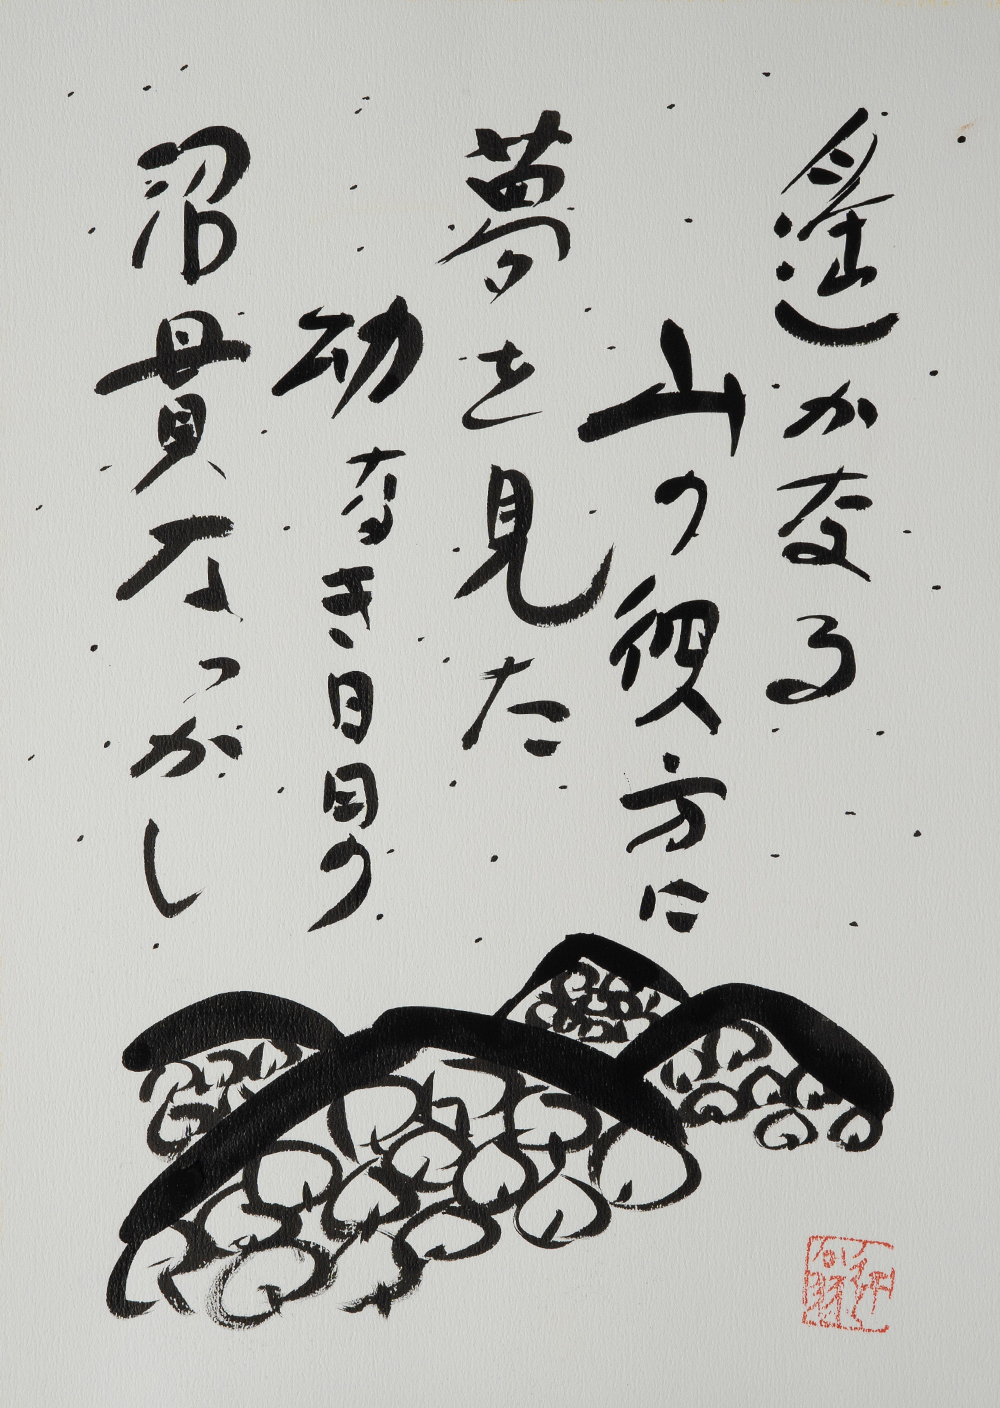 遥かなる
山の彼方に
夢を見た
幼なき日日の
沼貫なつかし